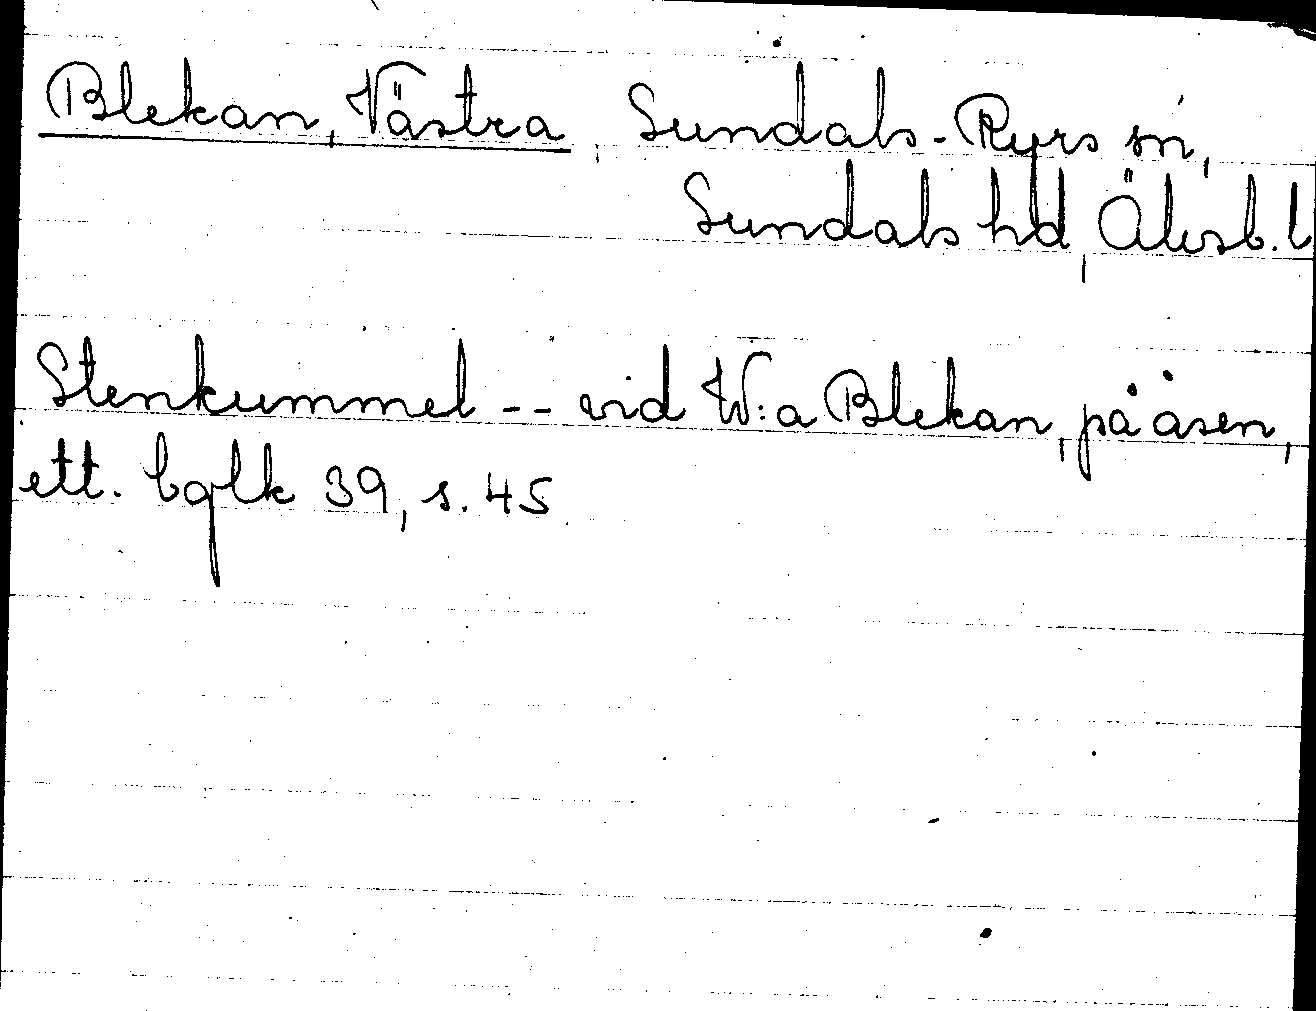 Blekan, Västra, Sundals-Ryrs sn,
Sundals hd, Älvsb. l
Stenkummel -- vid W:a Blekan, på åsen,
ett. bglk 39, s. 45